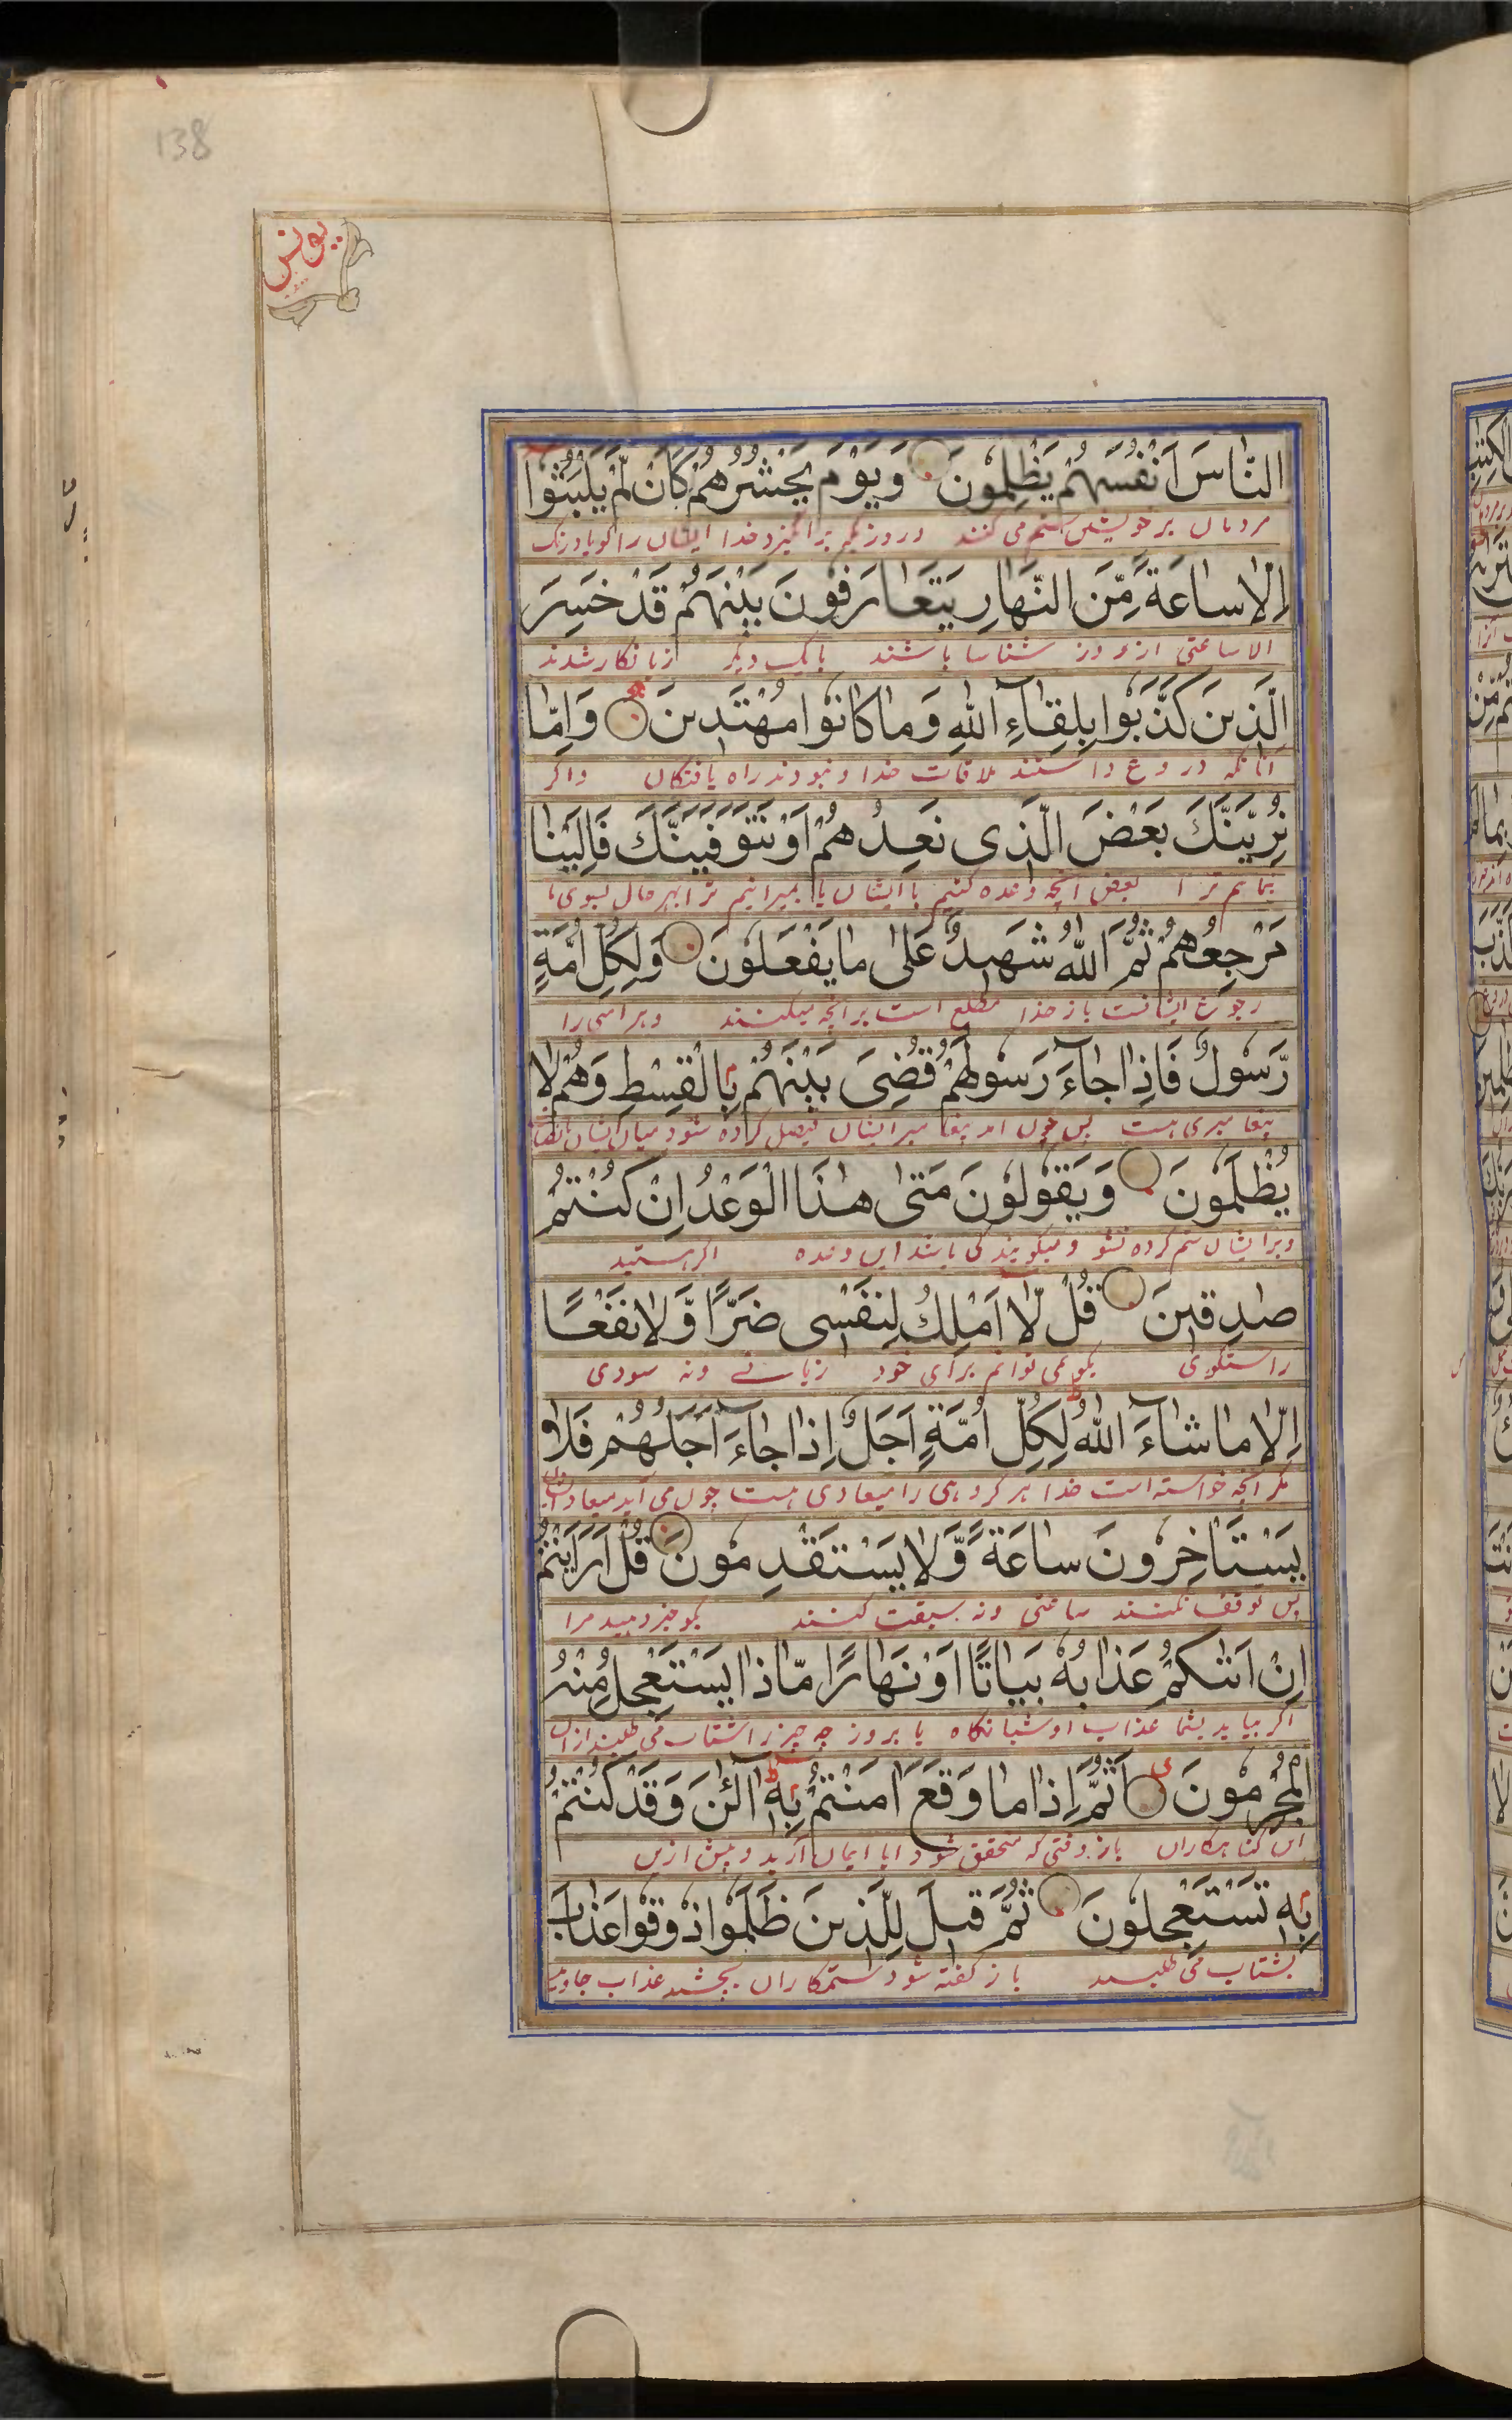 138
یونس
النَّاسَ اَنْفُسَهُمْ یَظْلِمُونَ وَیَوْمَ یَحْشُرُهُمْ کَاَنْ لَّمْ یَلْبَثُوا
مردمان بر خویشتن ستم می کنند و روزیکه برانگیزد خدا ایشان را گویا درنک
اِلَّا سَاعَةً مِّنَ النَّهَارِ یَتَعَارَفُونَ بَیْنَهُمْ قَدْ خَسِرَ
الا ساعتی از روز شناسا باشند با یک دیگر زیانکار شدند
الَّذِینَ کَذَّبُوا بِلِقَآءِ اللّٰهِ وَمَا کَانُوا مُهْتَدِینَ وَاِمَّا
آنانکه دروغ داشتند ملاقات خدا و نبودند راه یافتکان واگر
نُرِیَنَّكَ بَعْضَ الَّذِی نَعِدُهُمْ اَوْ نَتَوَفَّیَنَّكَ فَاِلَیْنَا
بنمایم ترا بعض آنچه وعده کنیم با ایشان یا بمیرانیم ترا بهر حال بسوی ما
مَرْجِعُهُمْ ثُمَّ اللّٰهُ شَهِیدٌ عَلٰی مَا یَفْعَلُونَ وَلِکُلِّ اُمَّةٍ
رجوع ایشانست باز خدا مطلع است بر آنچه میکنند و هر امتی را
رَّسُولٌ فَاِذَا جَآءَ رَسُولُهُمْ قُضِیَ بَیْنَهُمْ بِالْقِسْطِ وَهُمْ لَا
پیغامبری هست پس چون آمد پیغامبر ایشان فیصل کرده شود میان ایشان بانصاف
یُظْلَمُونَ وَیَقُولُونَ مَتٰی هٰذَا الْوَعْدُ اِنْ کُنْتُمْ
و بر ایشان ستم کرده نشود و میگویند کی باشد این وعده اگر هستید
صٰدِقِینَ قُلْ لَّا اَمْلِكُ لِنَفْسِی ضَرًّا وَّلَا نَفْعًا
راستگوی بگو نمی توانم برای خود زیانے و نه سودی
اِلَّا مَا شَآءَ اللّٰهُ لِکُلِّ اُمَّةٍ اَجَلٌ اِذَا جَآءَ اَجَلُهُمْ فَلَا
مگر آنچه خواسته است خدا هر گروهی را میعادی هست چون می آید میعاد ایشان
یَسْتَاْخِرُونَ سَاعَةً وَّلَا یَسْتَقْدِمُونَ قُلْ اَرَاَیْتُمْ
پس توقف نکنند ساعتی و نه سبقت کنند بگو خبر دهید مرا
اِنْ اَتٰکُمْ عَذَابُهُ بَیَاتًا اَوْ نَهَارًا مَّاذَا یَسْتَعْجِلُ مِنْهُ
اگر بیاید بشما عذاب او شبانگاه یا بروز چه چیز را شتاب می طلبند ازان
الْمُجْرِمُونَ اَثُمَّ اِذَا مَا وَقَعَ اٰمَنْتُمْ بِهٖ آلْئٰنَ وَقَدْ کُنْتُمْ
این گناهکاران باز وقتی که متحقق شود ایا ایمان آرید و پیش ازین
بِهٖ تَسْتَعْجِلُونَ ثُمَّ قِیلَ لِلَّذِینَ ظَلَمُوا ذُوقُوا عَذَابَ
بشتاب می طلبید باز گفته شود ستمکاران بچشید عذاب جاوید